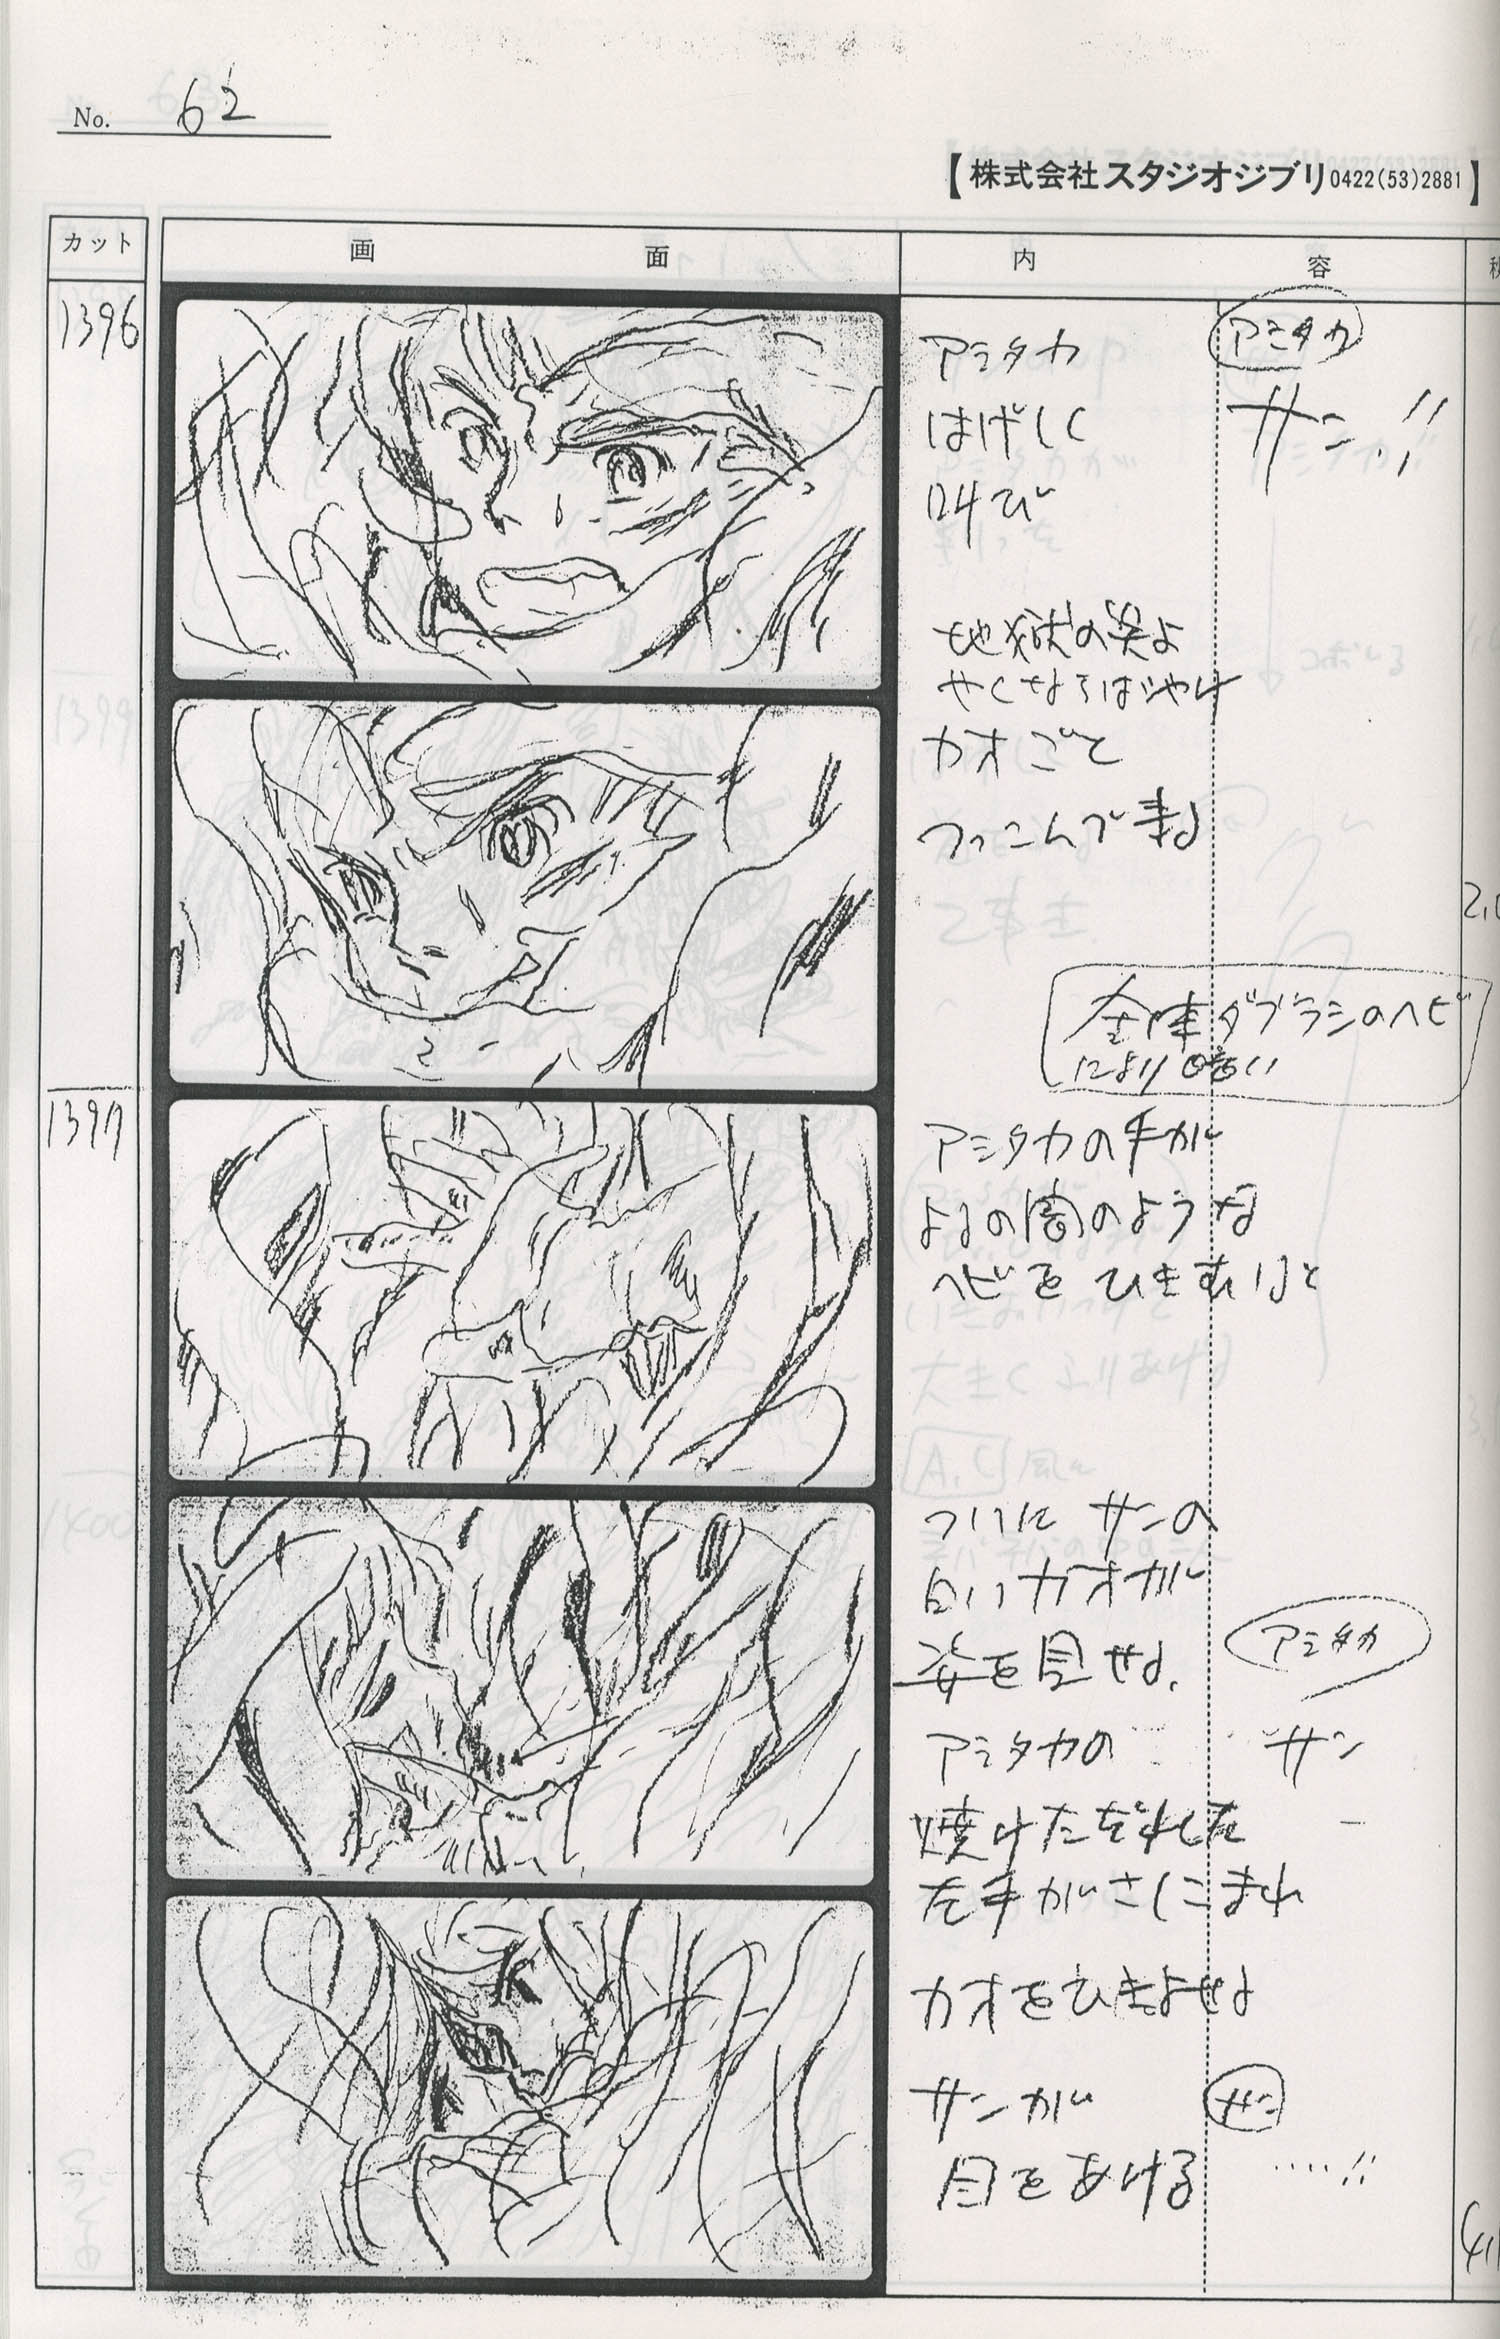 No. 62
【株式会社スタジオジブリ0422(53)2881】
カット
画面
内容
1396
アシタカ
はげしく
叫び
アシタカ
サン!!
地獄の炎よ
やくならばやけ
カオごと
つっこんで来る
全体ダブラシのヘビ
により暗い
1397
アシタカの手が
よるの闇のような
ヘビをひきむしると
ついにサンの
白いカオが
姿を見せる.
アシタカ
アシタカの
サン
焼けただれた
左手がさしこまれ
カオをひきよせる
サンが
サン
目をあける
....!!